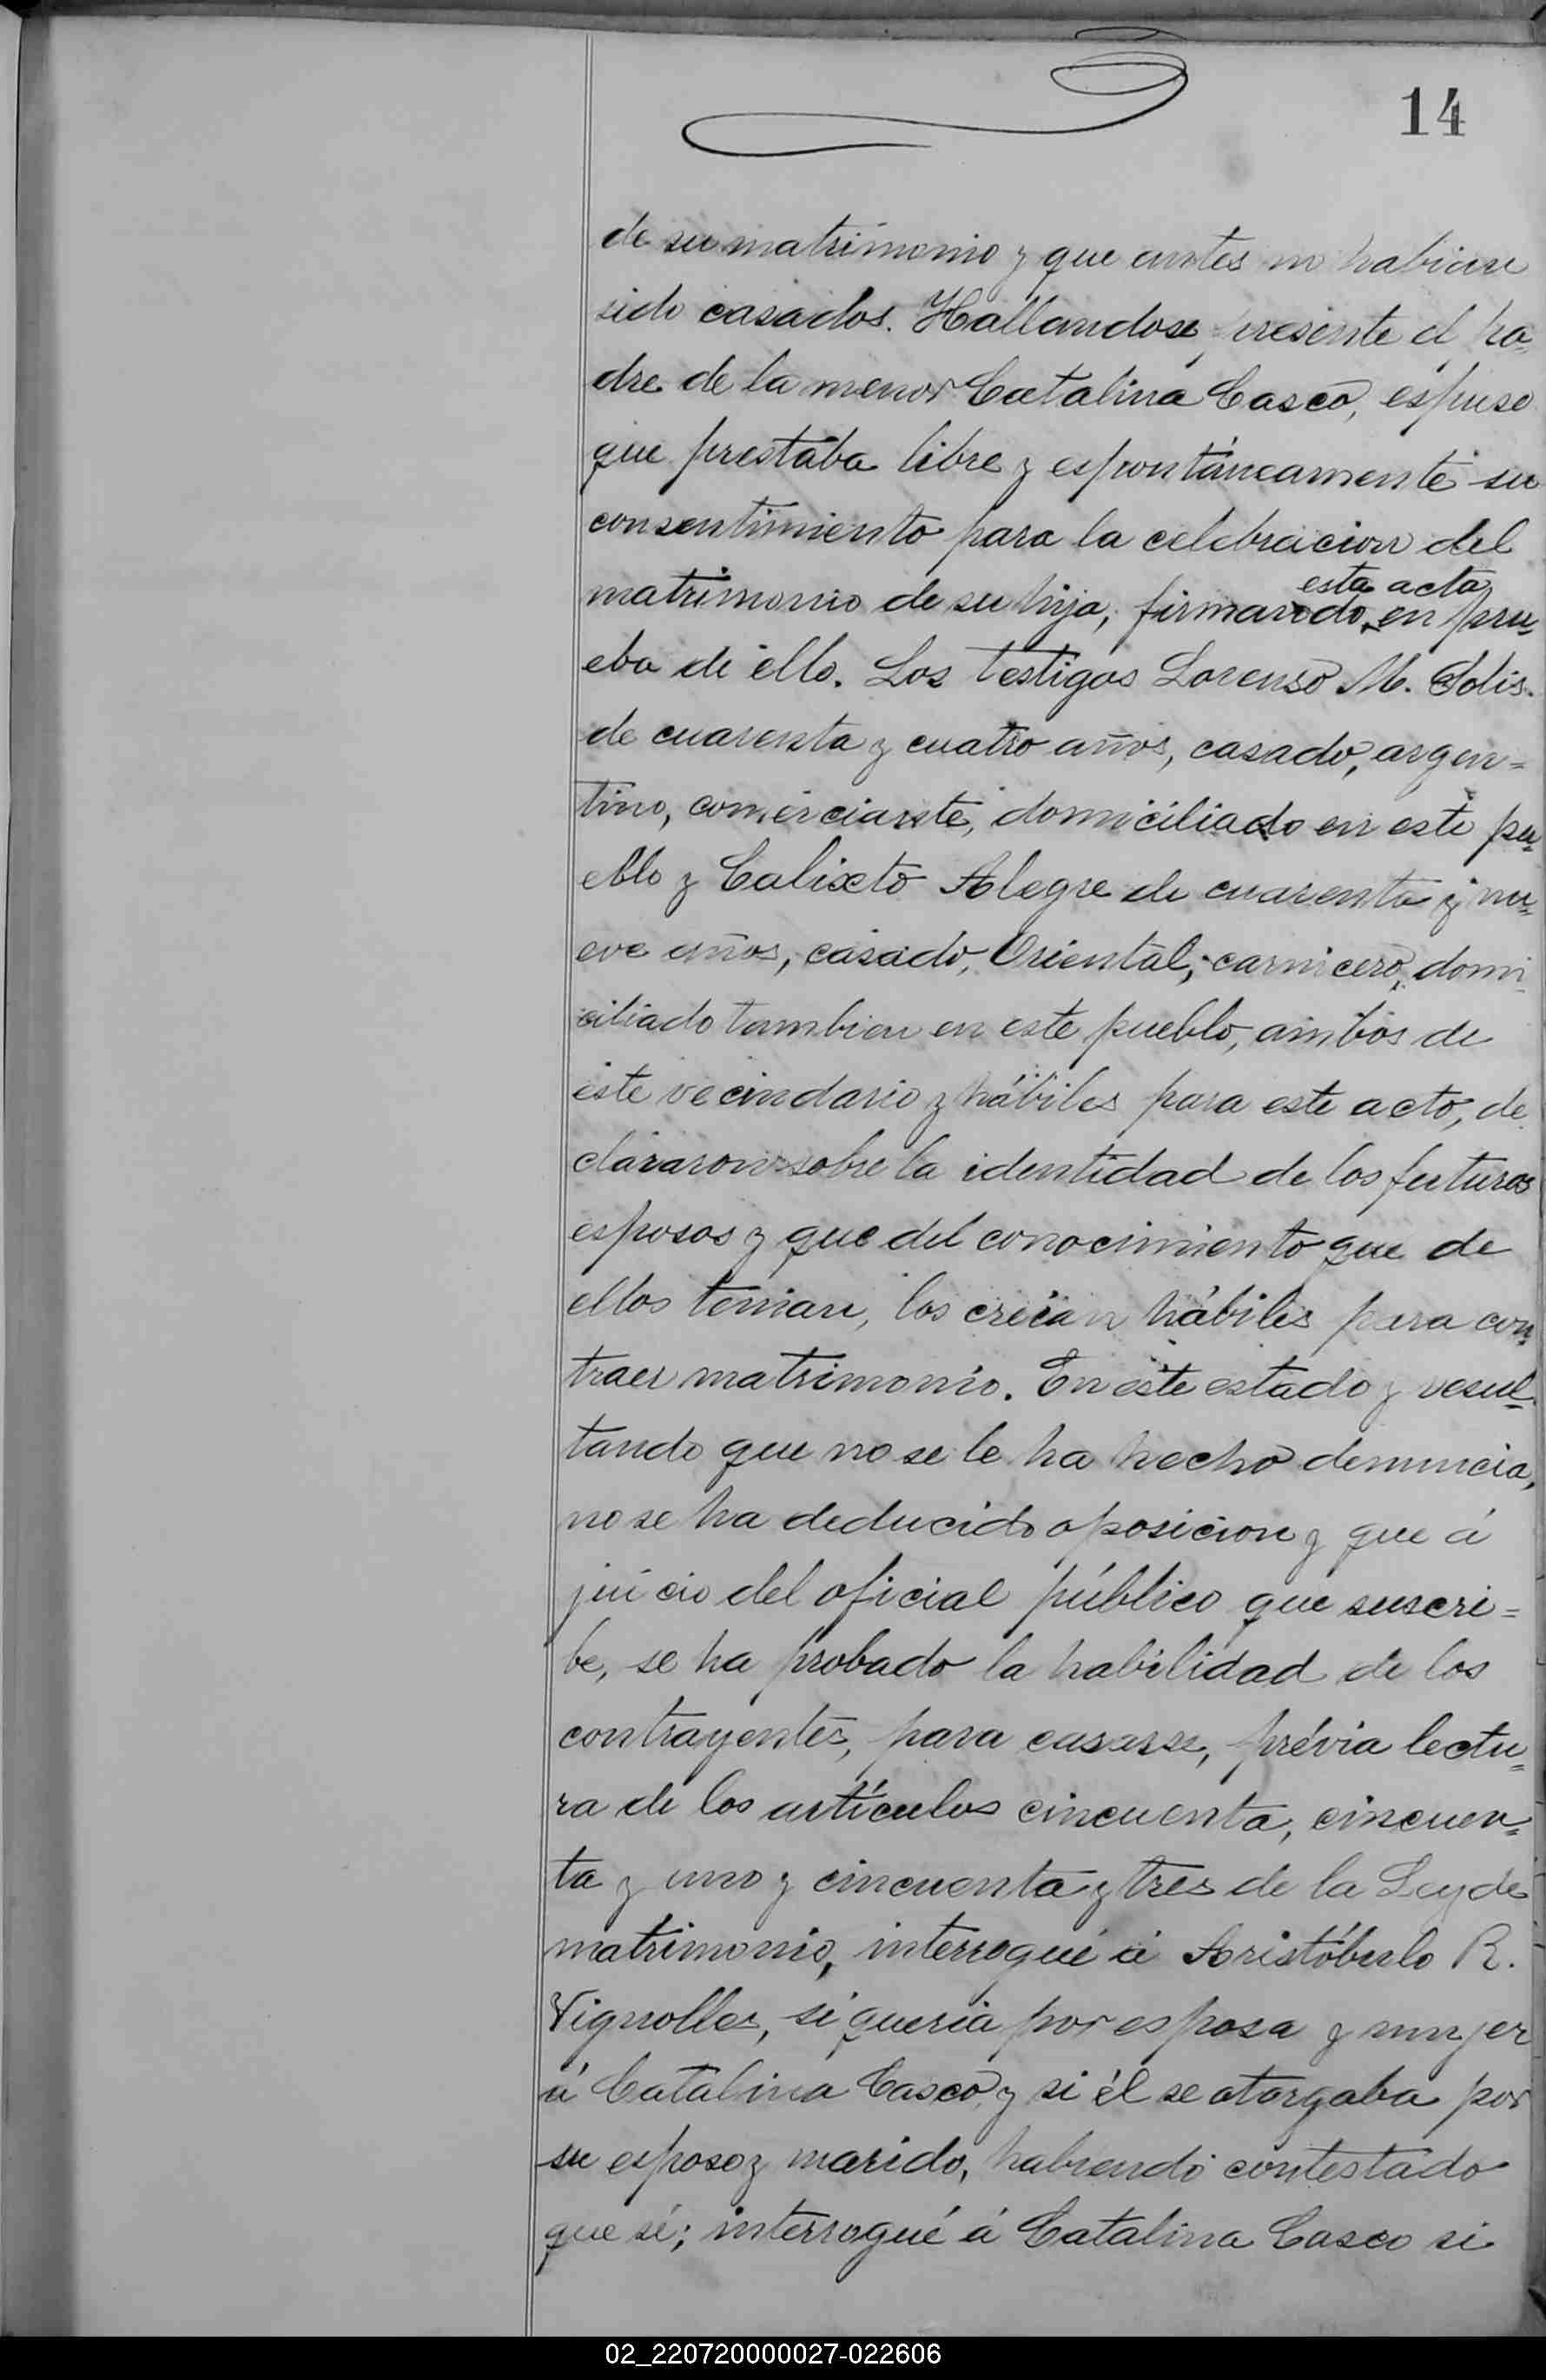 14
de su matrimonio y que antes no habian
sido casados. Hallandose presente el pa-
dre de la menor Catalina Casco, espuso
que prestaba libre y espontáneamente su
consentimiento para la celebracion del
esta acta
matrimonio de su hija, firmando en pru=
eba de ello. Los testigos Lorenzo M. Solis.
de cuarenta y cuatro años, casado, argen=
tino, comerciante, domiciliado en este pu=
eblo y Calixto Alegre de cuarenta y nu=
eve años, casado, Oriental, carnicero, domi-
ciliado tambien en este pueblo, ambos de
este vecindario y hábiles para este acto, de
clararon sobre la identidad de los futuros
esposos y que del conocimiento que de
ellos tenian, los creian hábiles para con=
traer matrimonio. En este estado y resul=
tando que no se le ha hecho denuncia,
no se ha deducido oposicion y que á
juicio del oficial público que suscri=
be, se ha probado la habilidad de los
contrayentes, para casarse, prévia lectu=
ra de los artículos cincuenta, cincuen=
ta y uno y cincuenta y tres de la Ley de
matrimonio, interrogué á Aristóbulo R.
Vignolles, si queria por esposa y mujer
á Catalina Casco y si él se otorgaba por
su esposo y marido, habiendo contestado
que sí; interrogué á Catalina Casco si
02_220720000027-022606